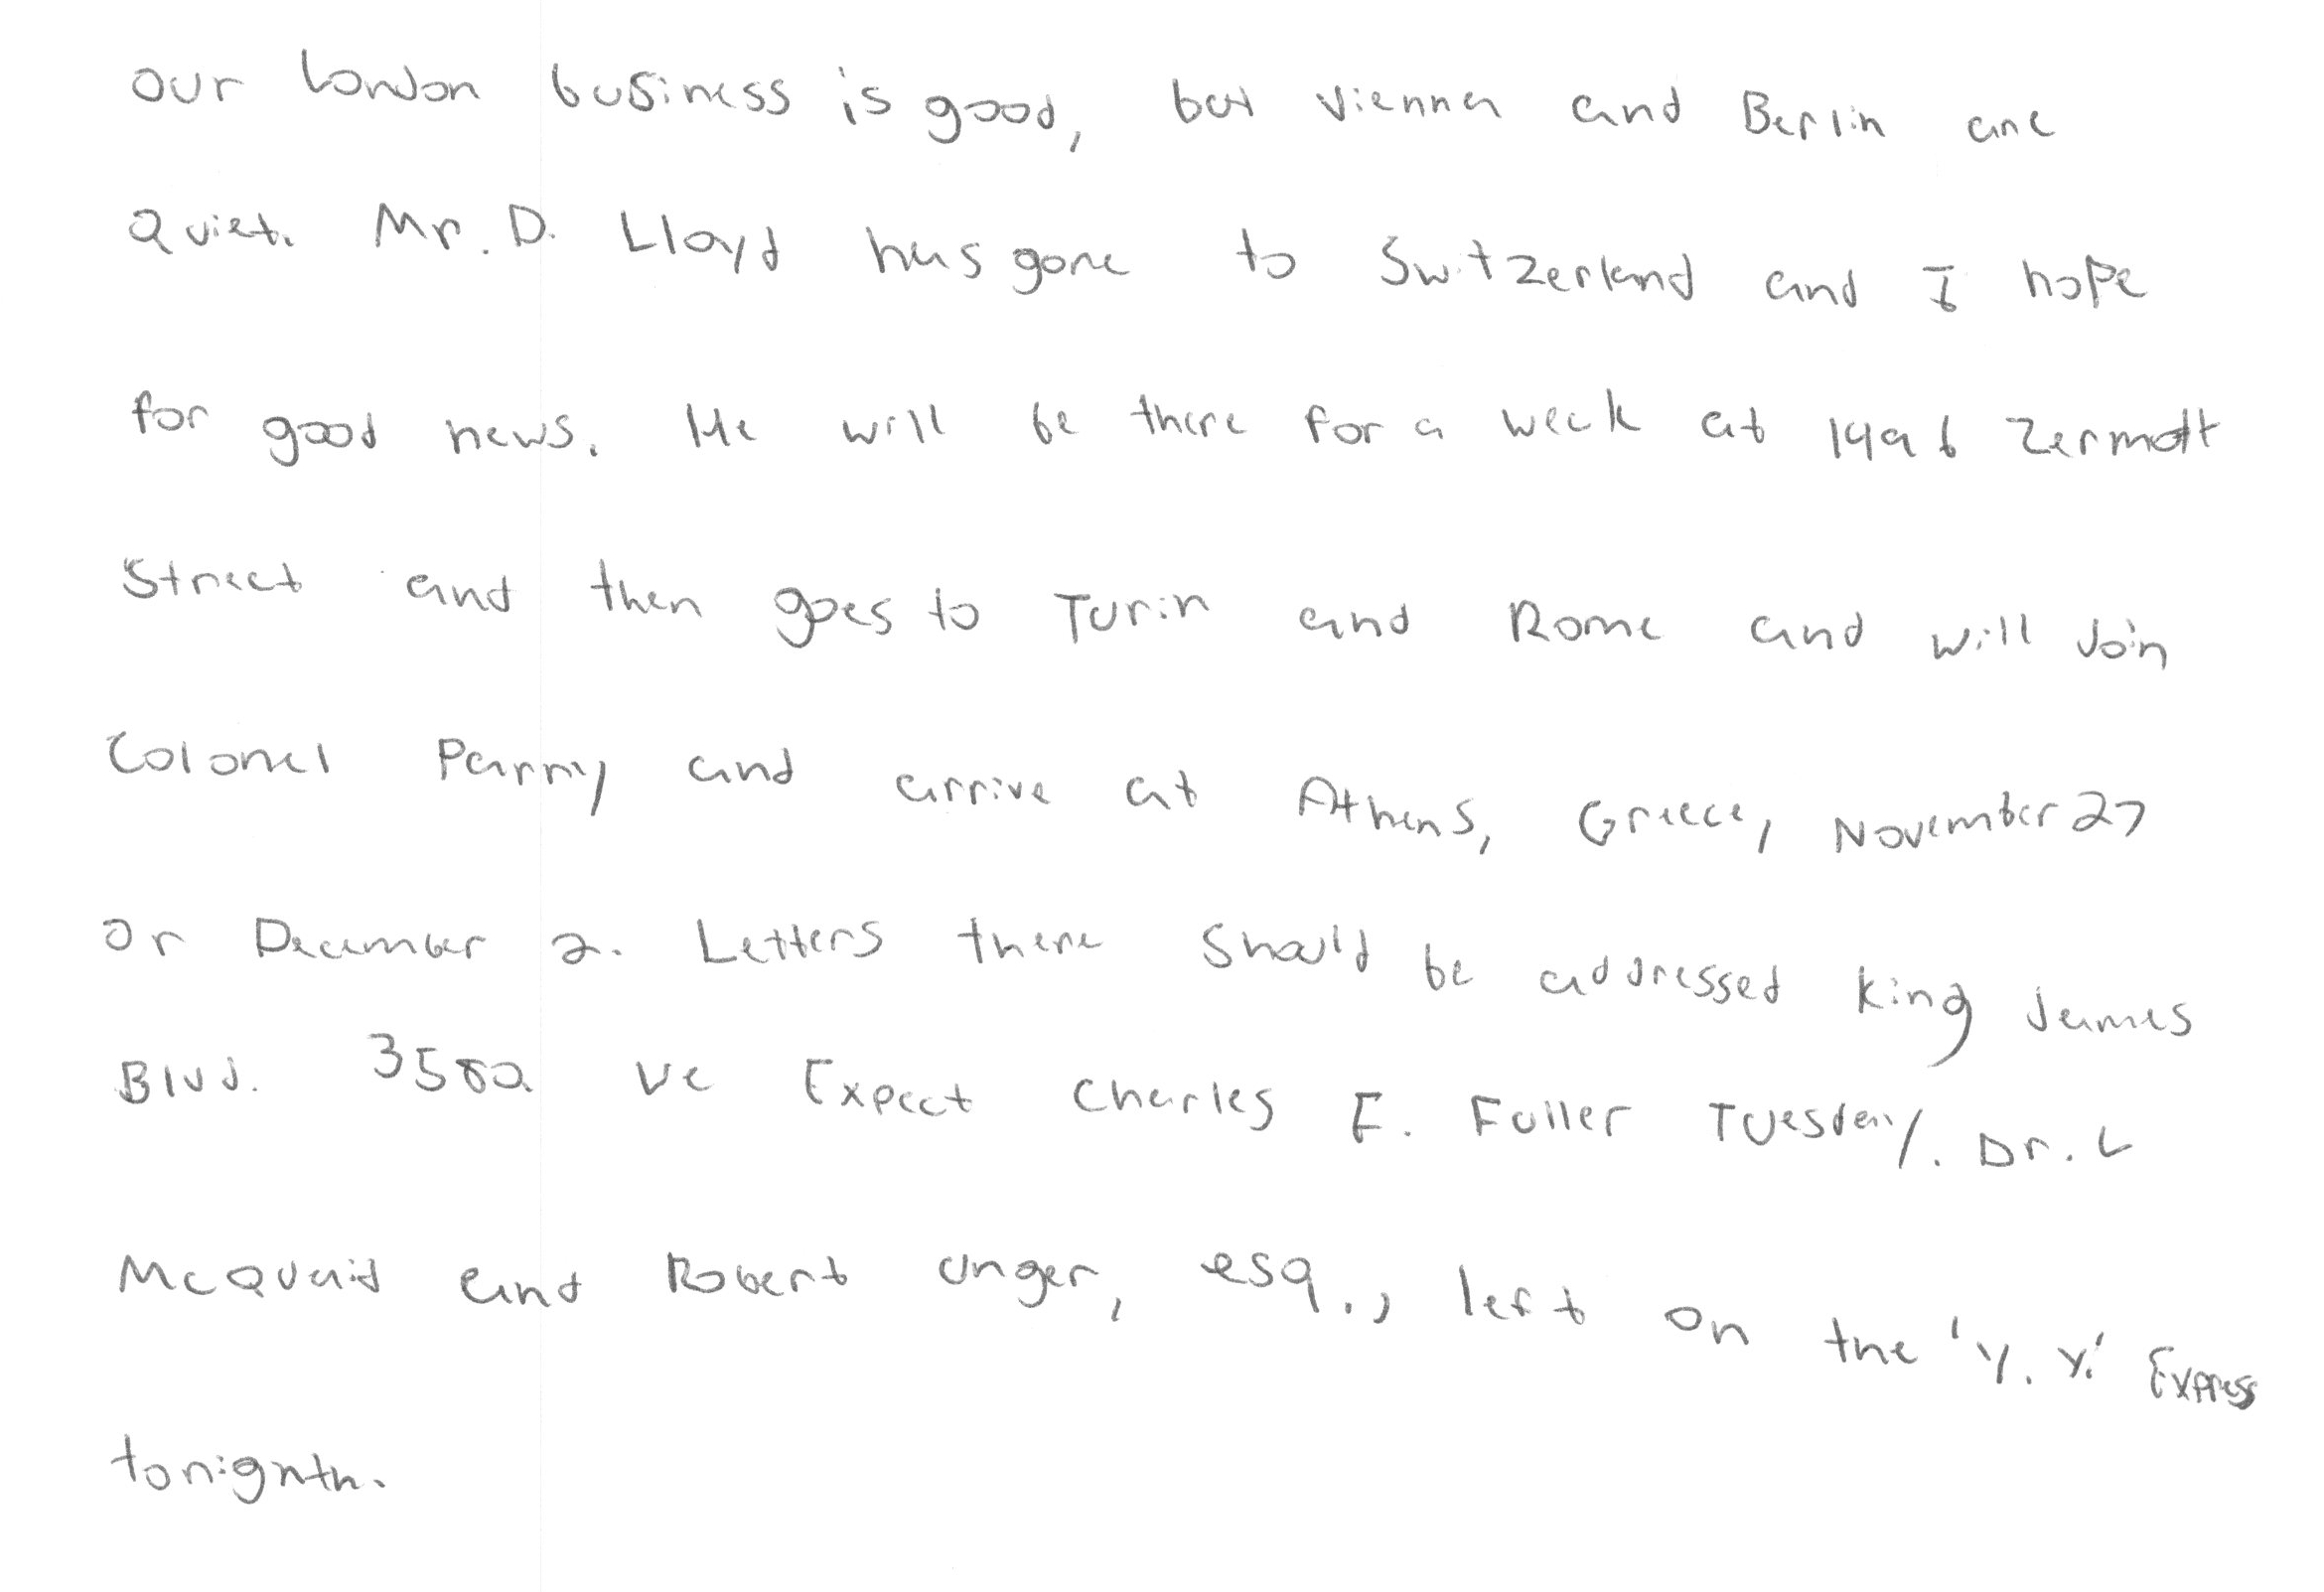 Our London business is good, but Vienna and Berlin are
Quiet. Mr. D. Lloyd has gone to Switzerland and I hope
for good news. He will be there for a week at 1496 Zermott
Street and then goes to Turin and Rome and will Join
Colonel Parry and arrive at Athens, Greece, November 27
or December 2. Letters there Should be addressed King James
Blvd. 3580. We Expect Charles E. Fuller Tuesday. Dr. L
McQuaid and Robert Unger, esq., left on the 'Y.X.' Express
tonignth.